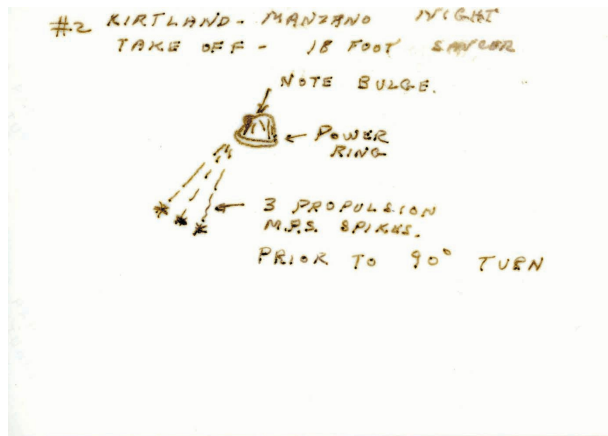 #2 KIRTLAND - MANZANO NIGHT
TAKE OFF - 18 FOOT SAUCER
NOTE BULGE.
POWER
RING
3 PROPULSION
M.P.S. SPIKES.
PRIOR TO 90° TURN